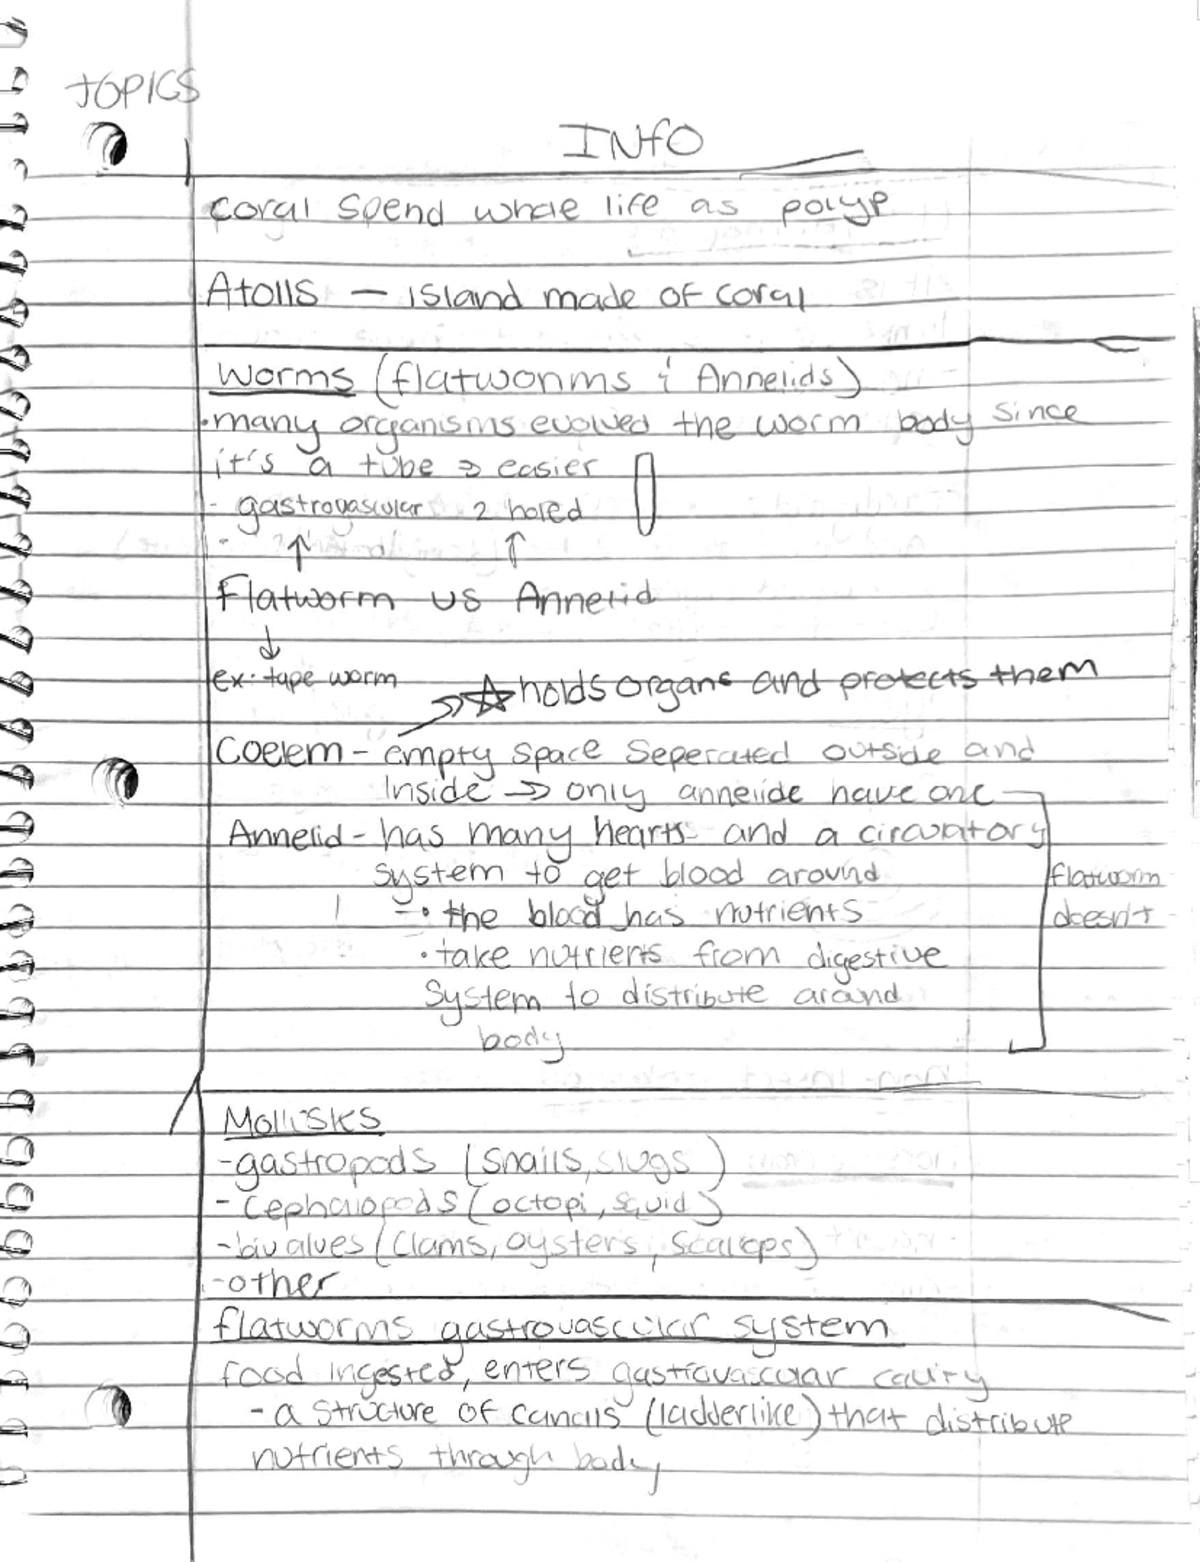 TOPICS
INfO
Coral spend whole life as polyp
Atolls — island made of coral
Worms (flatwonms & Annelids)
• many organisms evolved the worm body since
it's a tube → easier
- gastrovascular 2 holed
-
↑ ↑
Flatworm vs Annelid
↓
ex: tape worm
→ ☆ holds organs and protects them
Coelem - empty space seperated outside and
Inside → only annelide have one
Annelid - has many hearts and a circulatory
system to get blood around
flatworm
- • the blood has nutrients
doesn't
• take nutrients from digestive
system to distribute around
body
Mollusks
- gastropods (snails, slugs)
- cephalopods (octopi, squid)
- bivalves (clams, oysters, scallops)
- other
flatworms gastrovascular system
food ingested, enters gastrovascular cavity
- a structure of canals (ladderlike) that distribute
nutrients through body